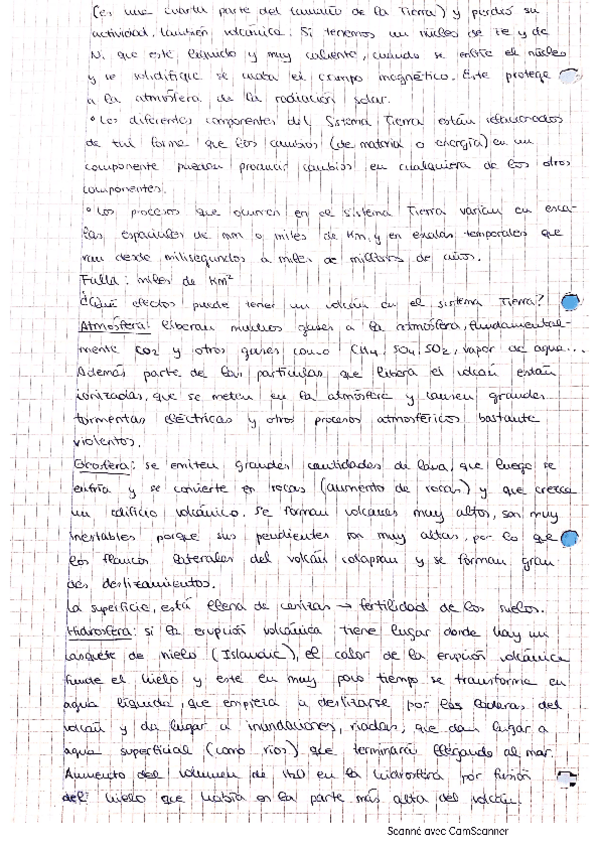 (es una cuarta parte del tamaño de la Tierra) y perdió su
actividad, también volcánica. Si tenemos un núcleo de Fe y de
Ni que esté líquido y muy caliente, cuando se enfríe el núcleo
y se solidifique se mata el campo magnético. Éste protege
a la atmósfera de la radiación solar.
• Los diferentes componentes del Sistema Tierra están
de tal forma que los cambios (de materia o energía) en un
componente pueden producir cambios en cualquiera de los otros
componentes.
• Los procesos que ocurren en el sistema Tierra varían en esca-
las espaciales de mm a miles de Km, y en escalas temporales que
van desde milisegundos a miles de millones de años.
Falla: miles de Km²
¿Qué efectos puede tener un volcán en el sistema Tierra?
Atmósfera: liberan muchos gases a la atmósfera, fundamental-
mente CO2 y otros gases como CH4, SO4, SO2, vapor de agua...
Además parte de las partículas que libera el volcán están
ionizadas, que se meten en la atmósfera y causen grandes
tormentas eléctricas y otros procesos atmosféricos bastante
violentos.
Geosfera: se emiten grandes cantidades de lava, que luego se
enfría y se convierte en rocas (aumento de rocas) y que crezca
un edificio volcánico. Se forman volcanes muy altos, son muy
inestables porque sus pendientes son muy altas, por lo que
los flancos laterales del volcán colapsan y se forman gran-
des deslizamientos.
La superficie, está llena de cenizas → fertilidad de los suelos.
Hidrosfera: si la erupción volcánica tiene lugar donde hay un
casquete de hielo (Islandia), el calor de la erupción volcánica
funde el hielo y este en muy poco tiempo se transforma en
agua líquida, que empieza a deslizarse por las laderas del
volcán y da lugar a inundaciones, riadas; que dan lugar a
agua superficial (como ríos) que terminará llegando al mar.
Aumento del volumen de H2O en la hidrosfera por fusión
del hielo que había en la parte más alta del volcán.
Scanné avec CamScanner